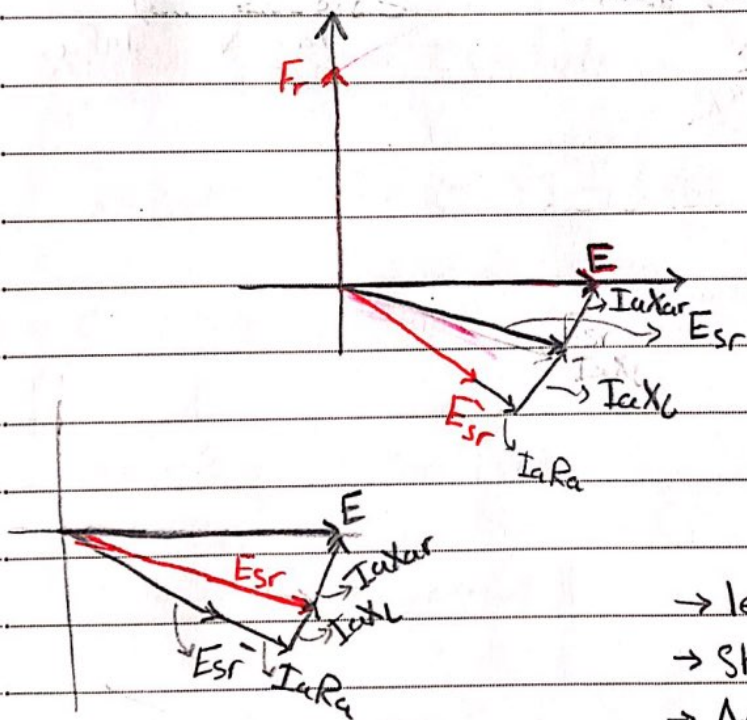 Fr
E
IaXar
Esr
IaXL
Esr
IaRa
E
Esr
IaXar
IaXL
Esr
IaRa
→ le
→ Sh